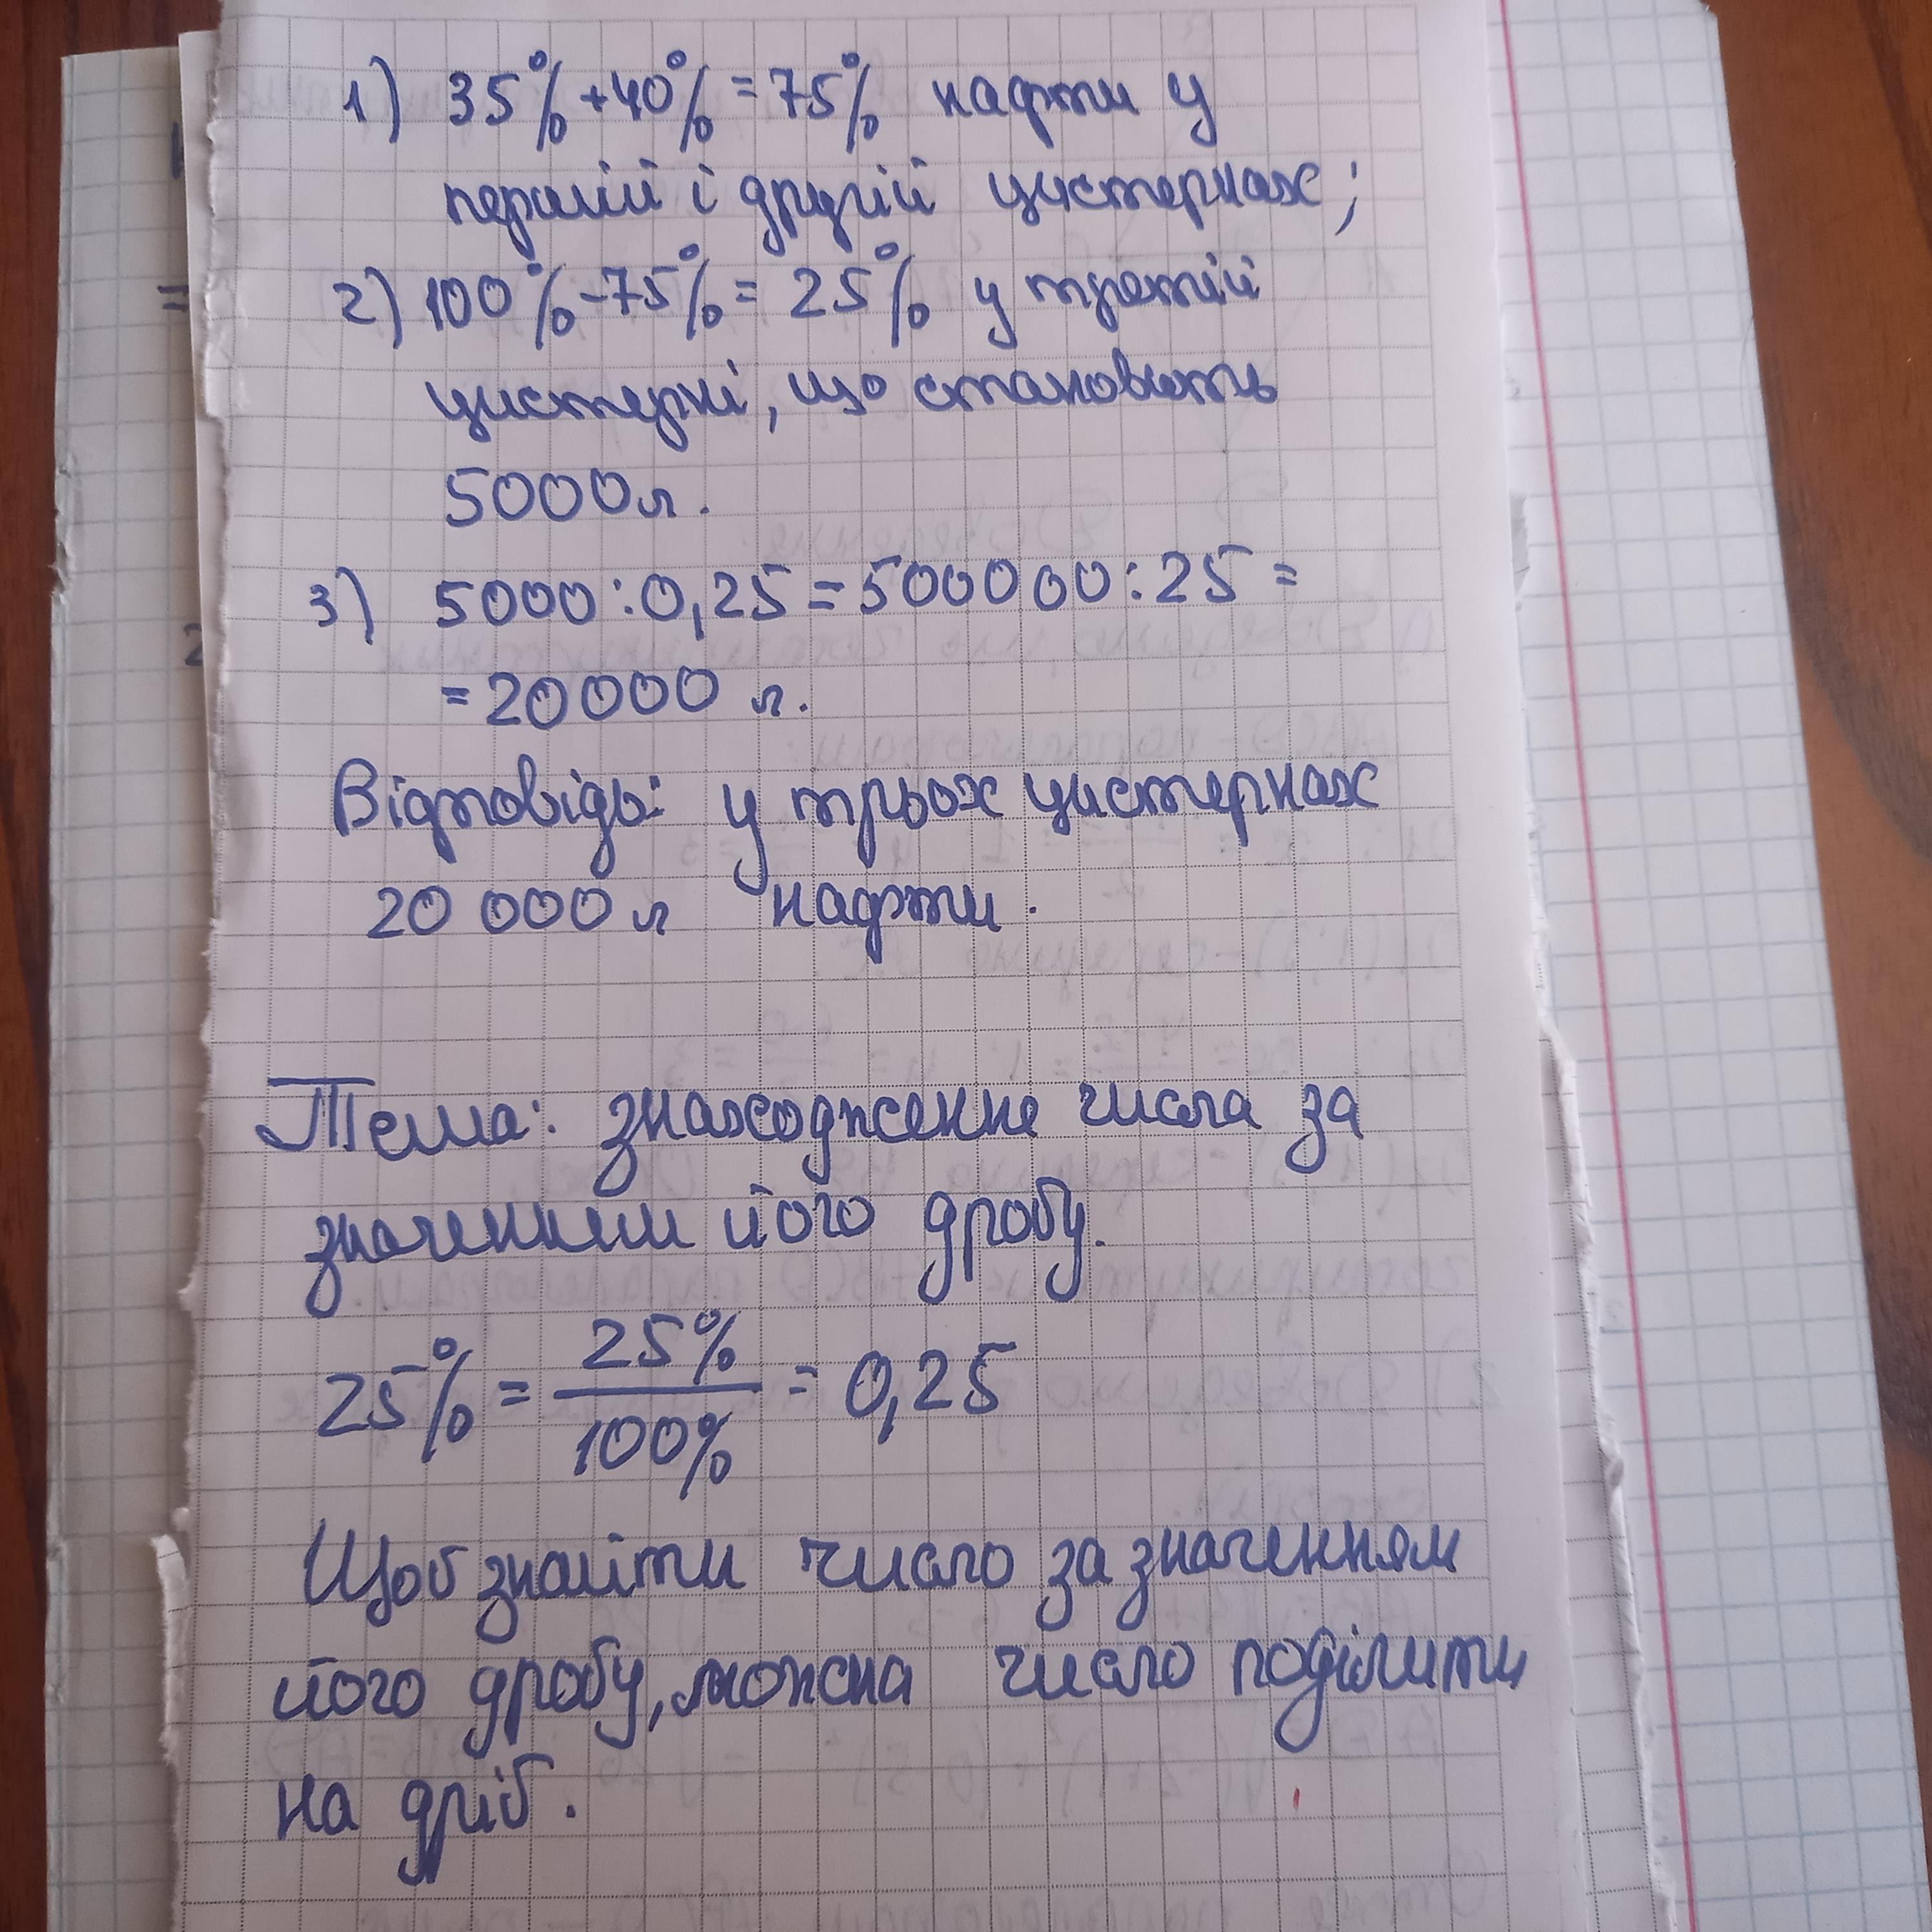 1) 35% + 40% = 75% нафти у
першій і другій цистернах;
2) 100% - 75% = 25% у третій
цистерні, що становить
5000 л.
3) 5000 : 0,25 = 500000 : 25 =
= 20000 л.
Відповідь: у трьох цистернах
20 000 л нафти.
Тема: знаходження числа за
значенням його дробу.
25% = 25% / 100% = 0,25
Щоб знайти число за значенням
його дробу, можна число поділити
на дріб.